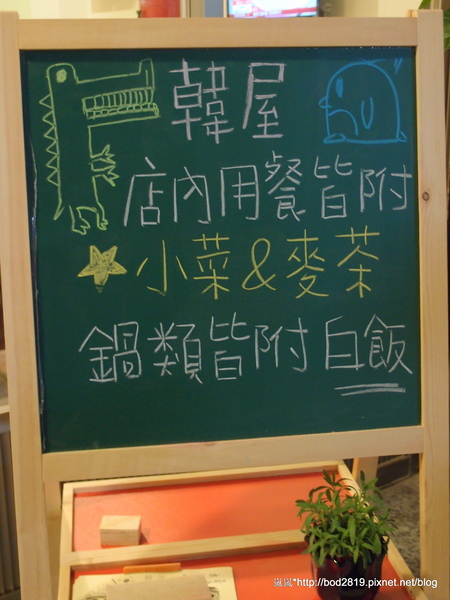 韓屋
店內用餐皆附
小菜&麥茶
鍋類皆附白飯
嵐嵐*http://bod2819.pixnet.net/blog